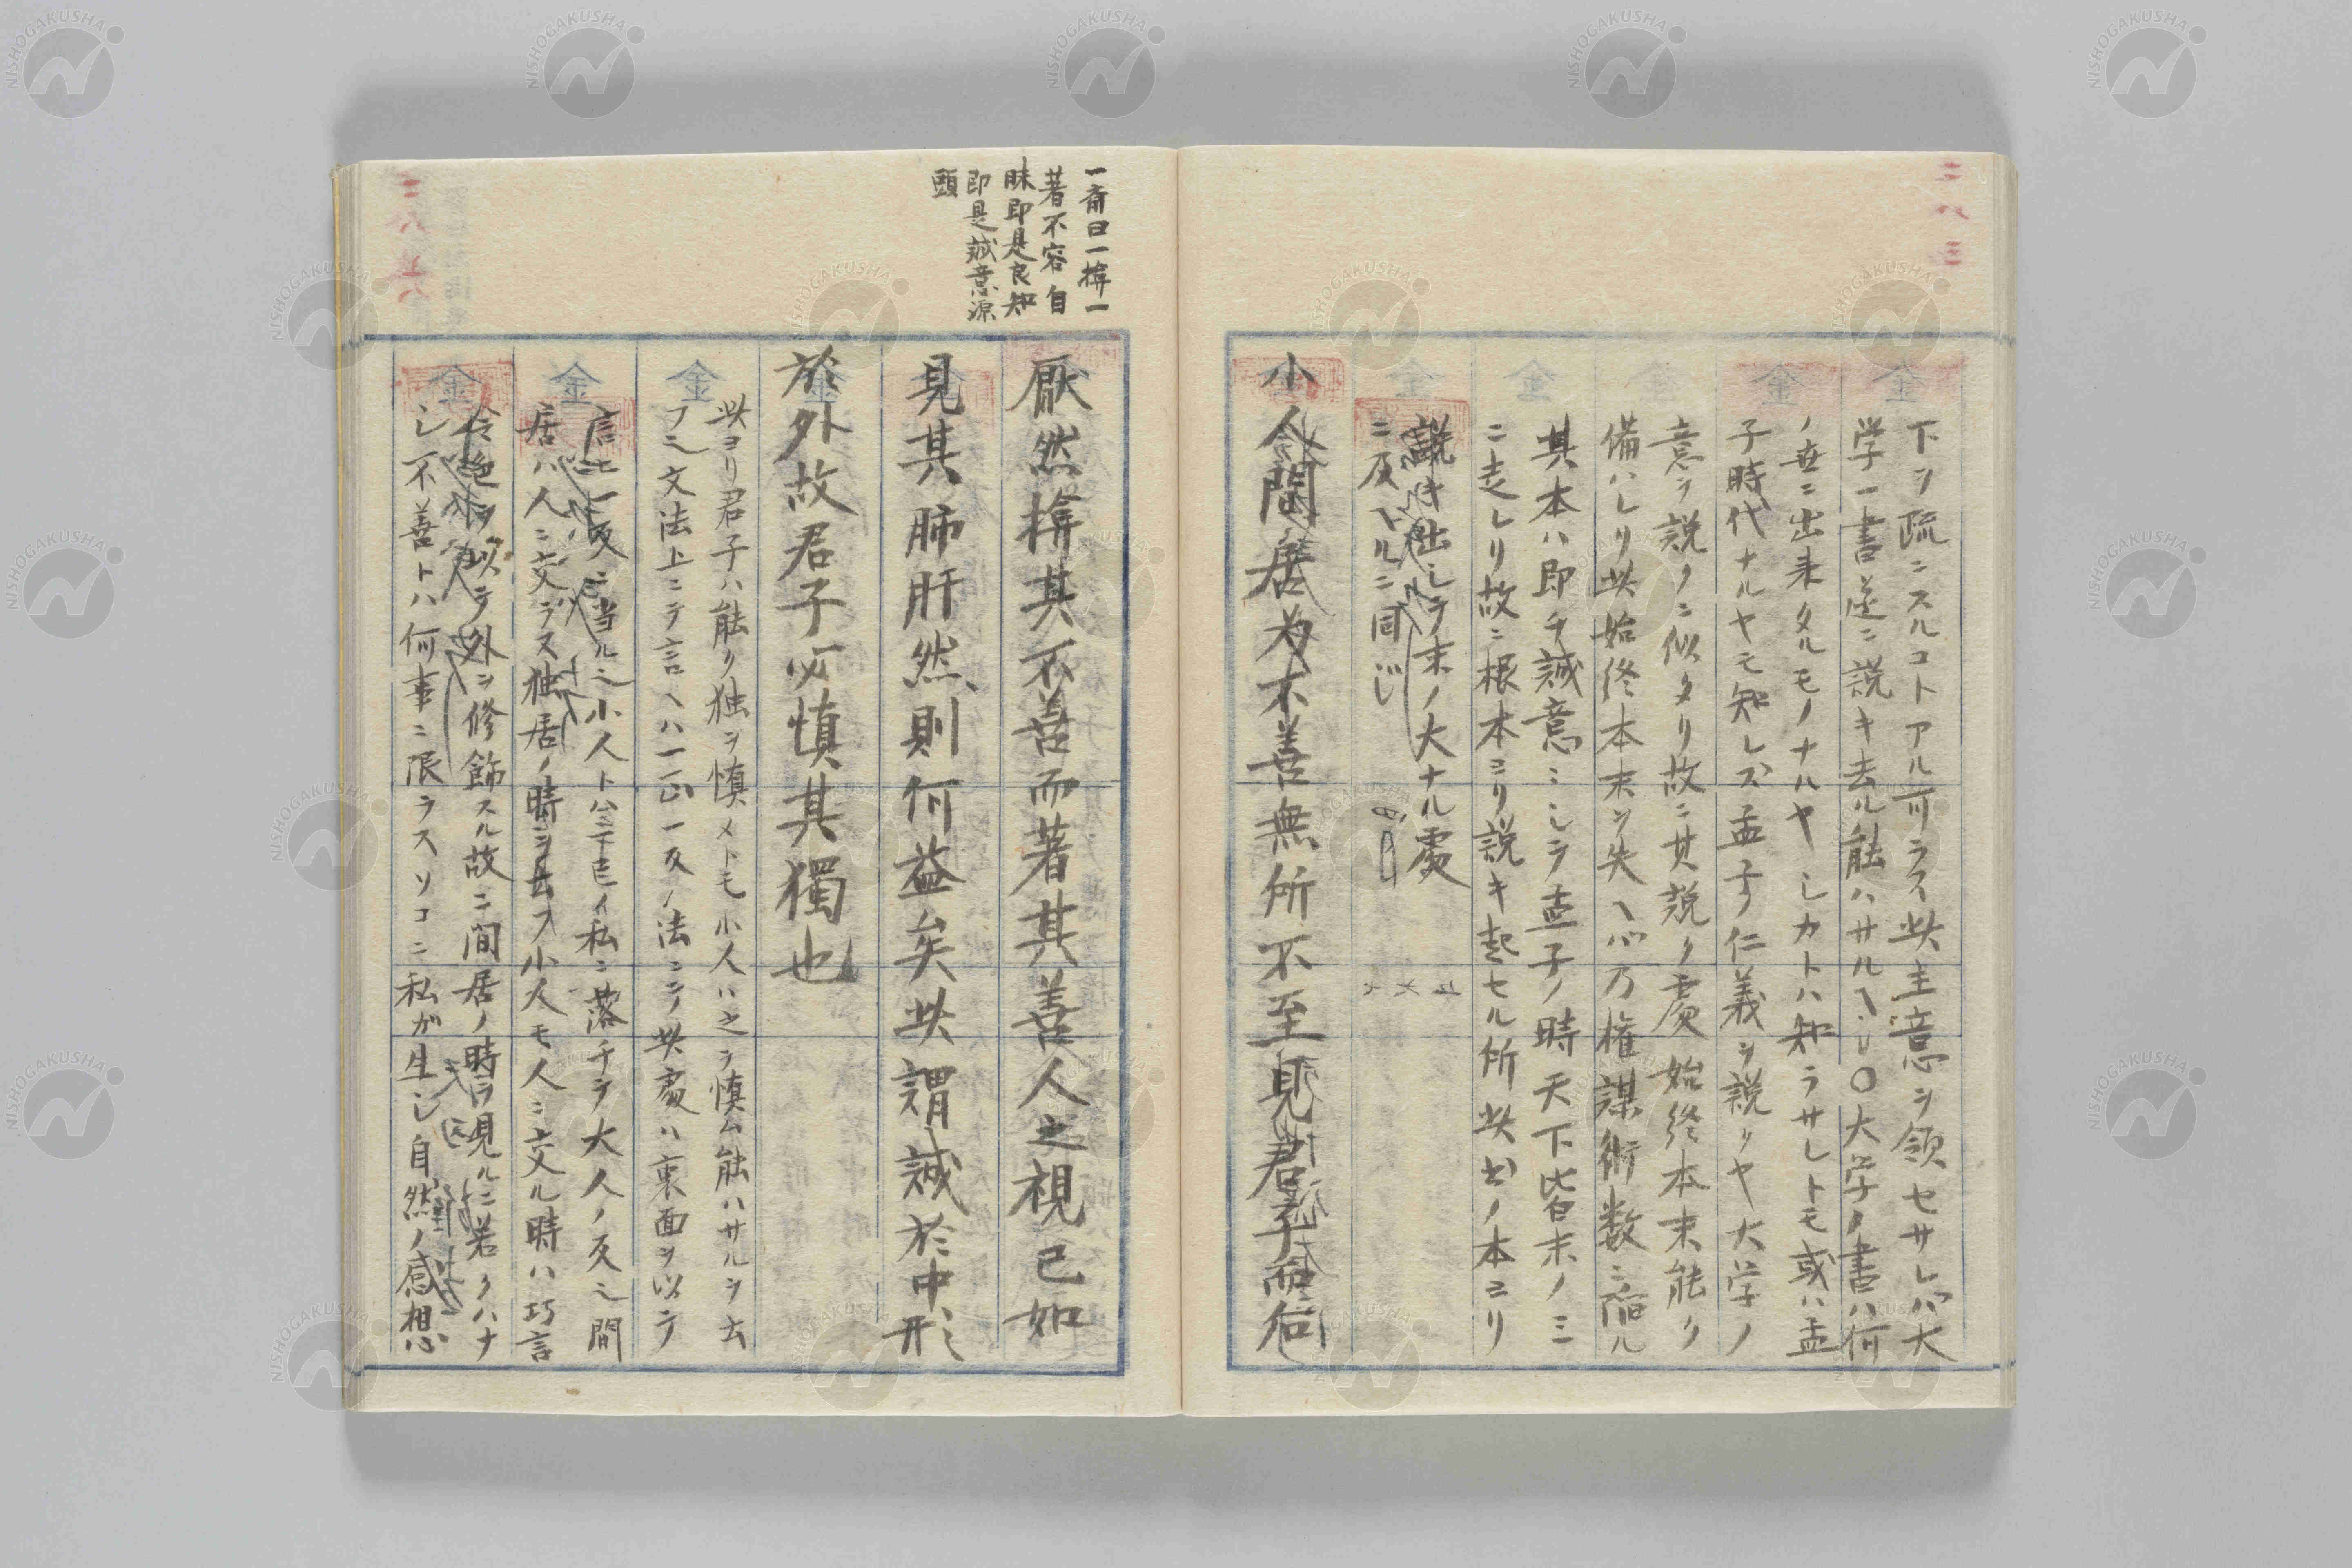 下ヲ疏ニスルコトアル可ラス此主意ヲ領セサレバ大
学一書遂ニ説キ去ル能ハサルヘシ〇大学ノ書ハ何
ノ世ニ出来タルモノナルヤシカトハ知ラサレトモ或ハ孟
子時代ナルヤモ知レズ孟子仁義ヲ説リヤ大学ノ
意ヲ説クニ似タリ故ニ其説ク処始終本末能ク
備ハレリ此始終本末ヲ失ヘハ乃権謀術数ニ陥ル
其本ハ即チ誠意ニシテ孟子ノ時天下皆末ノミ
ニ走レリ故ニ根本ヨリ説キ起セル所此書ノ本ヨリ
説キ出シテ末ノ大ナル処
ニ及ヘルニ同じ
小人間居為不善無所不至見君子而后
一斎曰一揜一
著不容自
昧即是良知
即是誠意源
頭
厭然揜其不善而著其善人之視己如
見其肺肝然則何益矣此謂誠於中形
於外故君子必慎其獨也
此ヨリ君子ハ能ク独ヲ慎メトモ小人ハ之ヲ慎ム能ハサルヲ云
フ文法上ニテ言ヘハ一正一反ノ法ニシテ此処ハ裏面ヲ以テ
言一反ニ当ル小人トハ私ニ落チテ大人ノ反間
居ハ人ニ交ラス独居ノ時ヲ云フ小人モ人ニ交ル時ハ巧言
令色ヲ以テ外ヲ修飾スル故ニ間居ノ時ヲ見ルニ若クハナ
シ不善トハ何事ニ限ラスソコニ私ガ生シ自然ノ感想
NISHOGAKUSHA